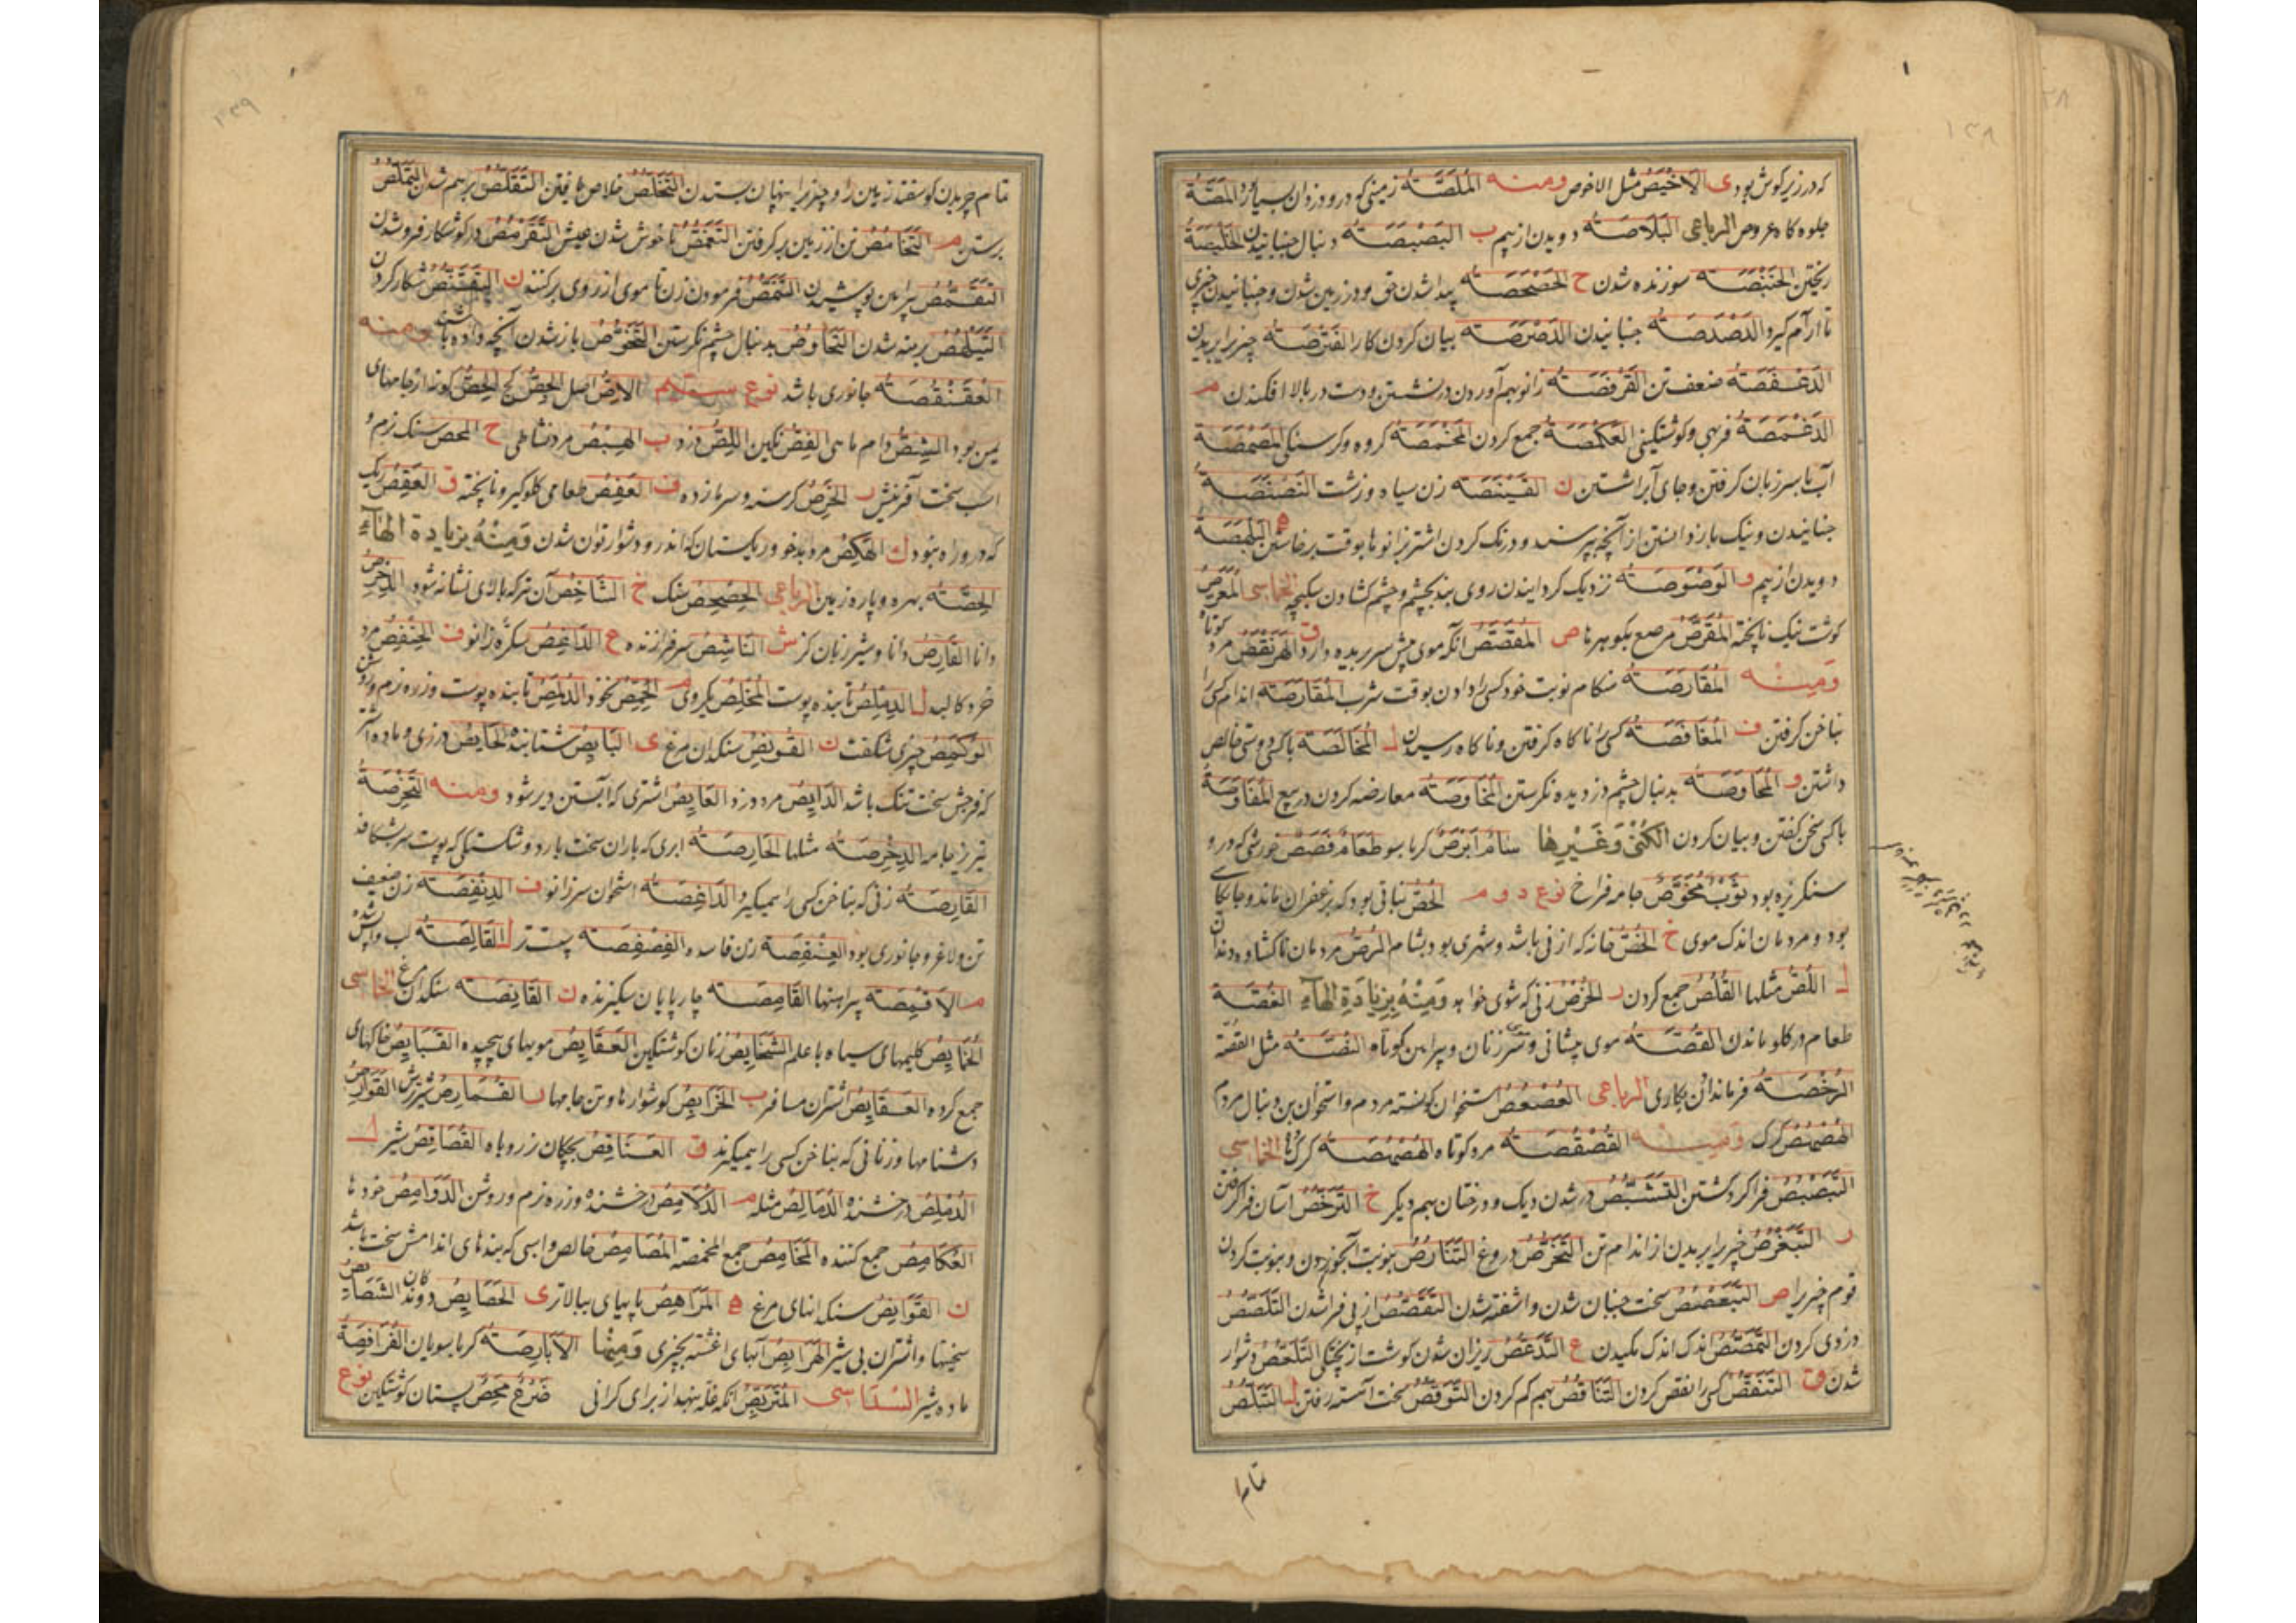 ۱۳۸
که در زیر گوش بود ی الاخیص مثل الاخوص ومنه الملصّة زمینی که درو دزدان بسیار المصّة
جلوه کاه عروس الرباعی البلاصة دویدن از بیم ب البصبصة دنبال جنبانیدن
ریختن الحنبصة سوزنده شدن ح الحصحصة پیدا شدن حق و در زمین شدن و جنبانیدن چیزی
تا آرام کیرد الدصدصة جنبانیدن بیان کردن کار الفترصة چیز را بریدن
الدغفصة ضعف تن القرفصة زانو بهم آوردن در نشستن و دست در بالا افکندن م
الدغمصة فربهی و کوشتکینی العکمصة جمع کردن المخمصة کروه و کرسنگی المصمصة
آب با سر زبان کرفتن و جای آب را شستن ن الفینصة زن سیاه و زشت النصنصة
جنبانیدن و نیک باز دانستن از آنچه پرسند و درنک کردن اشتر بزانوها بوقت برخاستن ه البلهصة
دویدن از بیم و الوصوصة نزدیک کردانیدن روی بند بچشم و چشم کشادن سکبچه الخماسی المعرّص
کوشت نیک ناپخته المقرّص مرصع بکوهرها ص المقصّص آنکه موی پیش سر بریده دارد ق الهرنقص مرد کوتاه
ومنه المقارصة هنکام نوبت خود کسی را دادن بوقت شرب المقارصة اندام کسی را
بناخن کرفتن ف المغافصة کسی را ناکاه کرفتن و ناکاه رسیدن ل المخالصة با کسی دوستی خالص
داشتن و المحاوصة بدنبال چشم دزدیده نکرستن المخاوصة معارضه کردن در بیع المفاوصة
با کسی سخن کفتن و بیان کردن الکنی وغیرها سامّ ابرص کرباسو طعام قصص خورشی که درو
سنکریزه بود ثوب مخوّص جامه فراخ نوع دوم الحصّ نباتی بود که بزعفران ماند و جایکاهی
بود و مردمان اندک موی خ الخصّ خانه که از نی باشد و شهری بود بشام المرصّ مردمان ناکشاده دندان
ل اللصّ مثلها القلص جمع کردن ر الخرص زنی که شوی خواهد ومنه بزیادة الهاء الغصّة
طعام در کلو ماندن القصّة موی پیشانی و سر زنان و پیراهن کوتاه النصّة مثل القصّة
الرخصة فرماندادن بکاری الرباعی العصعص استخوان کونسته مردم و استخوان بن دنبال مردم
الهصهص کرک ومنه القصقصة مرد کوتاه الهصهصة کرکها الخماسی
التبصبص فراکرد کشتن التشبّص درشدن دیک و درختان بهم دیکر خ الترخّص آسان فراکرفتن
ر التبغرص چیز را بریدن از اندام تن التخرّص دروغ التنارص بنوبت آبخور دون و بنوبت کردن
قوم چیز را ص التبعصص سخت جنبان شدن و آشفته شدن التقصّص از پی فرا شدن التلصّص
دزدی کردن التمصّص اندک اندک مکیدن ع التدعّص ریزان شدن کوشت از پختکی التلعّص دشوار
شدن ق التنقّص کسی را نقص کردن التناقص بهم کم کردن التوقّص سخت آهسته رفتن ل التبلّص
تمام
۱۳۹
تمام چریدن کوسفند زمین را و چیز را پنهان بستدن التخلّص خلاص یافتن التقلّص برهم شدن التملّص
برستن م التخامص تن از زمین برکرفتن التغمّص ناخوش شدن عیش التقرمص در کوشکار فروشدن
التقمّص پیراهن پوشیدن التنمّص فرمودن زن تا موی از روی برکنند ن التقنّص شکار کردن
برهنه شدن التحاوص بدنبال چشم نکرستن التخوّص باز شدن آنچه داده باشند ومنه
العقنقصة جانوری باشد نوع سیم الاصّ اصل الجصّ کج الحصّ کونه از جامهای
یمن بود الشصّ دام ماهی الفصّ نکین اللصّ دزد ب الهبص مرد نشاطی ح المحص سنک نرم و
اسب سخت آفرینش ر الخرص کرسنه و سرمازده ف العفص طعامی کلوکیر و ناپخته ق العقص ریک
که درو راه نبود ك الهکص مرد بدخو و ریکستان که اندرو دشوار توان شدن ومنه بزیادة الهاء
الحصّة بهره و پاره زمین الرباعی الحصحص سنک خ الشاخص آن تیر که بالای نشانه شود
دانا القارص دانا و شیر زبان کز ش الناشص سرفرازنده ع الداغص سکره زانو ف الحنفص مرد
خرد کالبد ل الدملص تابنده پوست المخلص یکروی م الحمّص نخود الدلمص تابنده پوست و زره نرم و روشن
چیزی شکفت ن القونص سنکدان مرغ ی البایص شتابنده الحایص درزی و ماده اشتر
که فرجش سخت تنک باشد الدایص مرد دزد العایص اشتری که آبستن دیر شود ومنه التخرصة
تیریز جامه الدخرصة مثلها الحارصة ابری که باران سخت بارد و شکستکی که پوست سر بشکافد
القارصة زنی که بناخن کسی را همیکیرد الداغصة استخوان سر زانو ف الدنفصة زن ضعیف
تن و لاغر و جانوری بود العنفصة زن فاسده الفصفصة سپست تر ل القالصة لب واپس شده
م الاقمصة پیراهنها القامصة چارپایان سکیزنده ن القانصة سنکدان مرغ الخماسی
الخمایص کلیمهای سیاه با علم الشخایص زنان کوشتکین العقایص مویهای پیچیده القبایص خاکهای
جمع کرده العقایص اشتران مسافر ب الخرابص کوشوارها و تن جامها ر القمارص شیر ترش القوارص
دشنامها و زنانی که بناخن کسی را همیکیرند ق العناقص بچکان نر روباه القصاقص شیر ل
الدملص درخشنده الدمالص مثله م الدلامص درخشنده و زره نرم و روشن الدوامص خودها
العکامص جمع کننده المخامص جمع المخمصة المصامص خالص و اسبی که بندهای اندامش سخت باشد
ن القوانص سنکدانهای مرغ ه المراهص پایهای ببالاتر ی الحصایص دوندکان الشصایص
سختیها و اشتران بی شیر الهرایص آبهای اغشته بچیزی ومنها الابارصة کرباسویان الفرافصة
ماده شیر السداسی المتربّص آنکه غله بنهد از برای کرانی ضرع محص پستان کوشتکین نوع